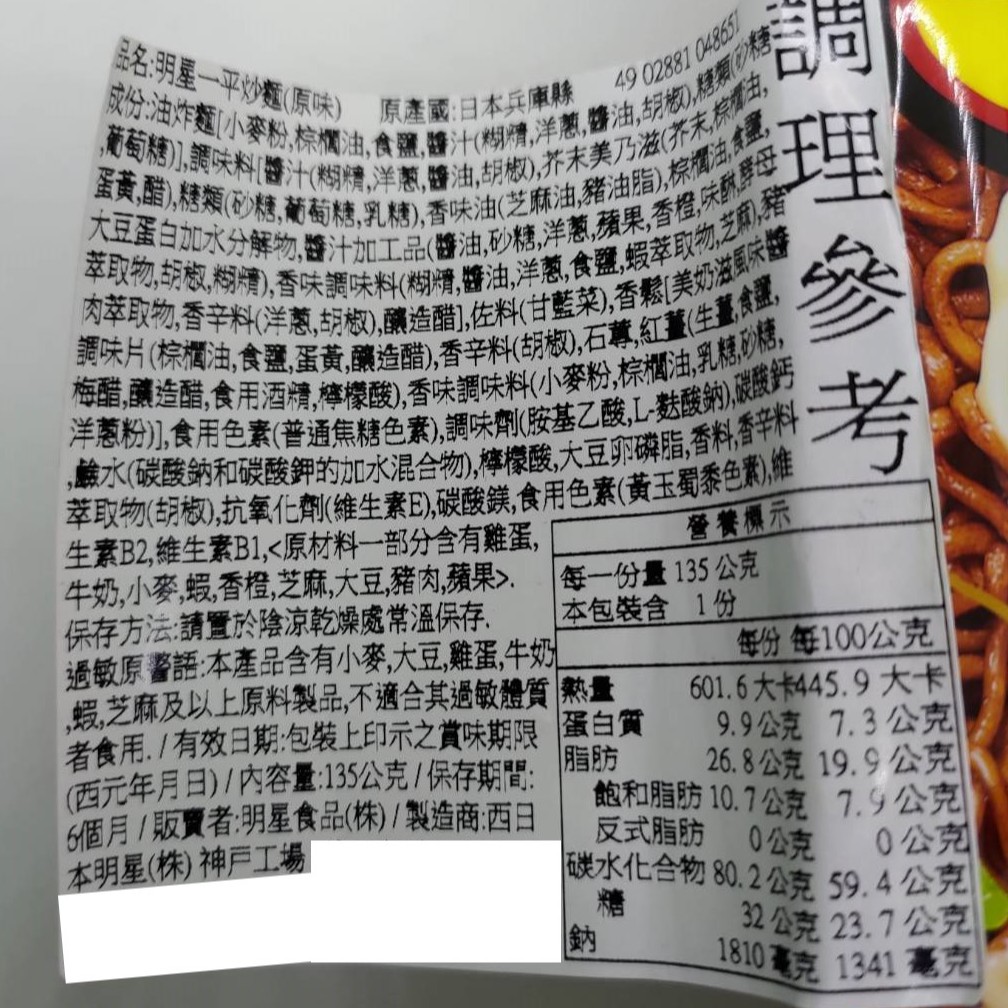 調理參考
品名:明星一平炒麵(原味) 原產國:日本兵庫縣 49 02881 048651
成份:油炸麵[小麥粉,棕櫚油,食鹽,醬汁(糊精,洋蔥,醬油,胡椒),糖類(砂糖
,葡萄糖)],調味料[醬汁(糊精,洋蔥,醬油,胡椒),芥末美乃滋(芥末,棕櫚油,
蛋黃,醋),糖類(砂糖,葡萄糖,乳糖),香味油(芝麻油,豬油脂),棕櫚油,食鹽,
大豆蛋白加水分解物,醬汁加工品(醬油,砂糖,洋蔥,蘋果,香橙,味醂,酵母
萃取物,胡椒,糊精),香味調味料(糊精,醬油,洋蔥,食鹽,蝦萃取物,芝麻),豬
肉萃取物,香辛料(洋蔥,胡椒),釀造醋],佐料(甘藍菜),香鬆[美奶滋風味醬
調味片(棕櫚油,食鹽,蛋黃,釀造醋),香辛料(胡椒),石蓴,紅薑(生薑,食鹽,
梅醋,釀造醋,食用酒精,檸檬酸),香味調味料(小麥粉,棕櫚油,乳糖,砂糖,
洋蔥粉)],食用色素(普通焦糖色素),調味劑(胺基乙酸,L-麩酸鈉),碳酸鈣
,鹼水(碳酸鈉和碳酸鉀的加水混合物),檸檬酸,大豆卵磷脂,香料,香辛料
萃取物(胡椒),抗氧化劑(維生素E),碳酸鎂,食用色素(黃玉蜀黍色素),維
生素B2,維生素B1,<原材料一部分含有雞蛋,
牛奶,小麥,蝦,香橙,芝麻,大豆,豬肉,蘋果>.
保存方法:請置於陰涼乾燥處常溫保存.
過敏原警語:本產品含有小麥,大豆,雞蛋,牛奶
,蝦,芝麻及以上原料製品,不適合其過敏體質
者食用. / 有效日期:包裝上印示之賞味期限
(西元年月日) / 內容量:135公克 / 保存期間:
6個月 / 販賣者:明星食品(株) / 製造商:西日
本明星(株) 神戶工場
營養標示
每一份量 135 公克
本包裝含 1 份
每份 每100公克
熱量 601.6 大卡 445.9 大卡
蛋白質 9.9 公克 7.3 公克
脂肪 26.8 公克 19.9 公克
飽和脂肪 10.7 公克 7.9 公克
反式脂肪 0 公克 0 公克
碳水化合物 80.2 公克 59.4 公克
糖 32 公克 23.7 公克
鈉 1810 毫克 1341 毫克